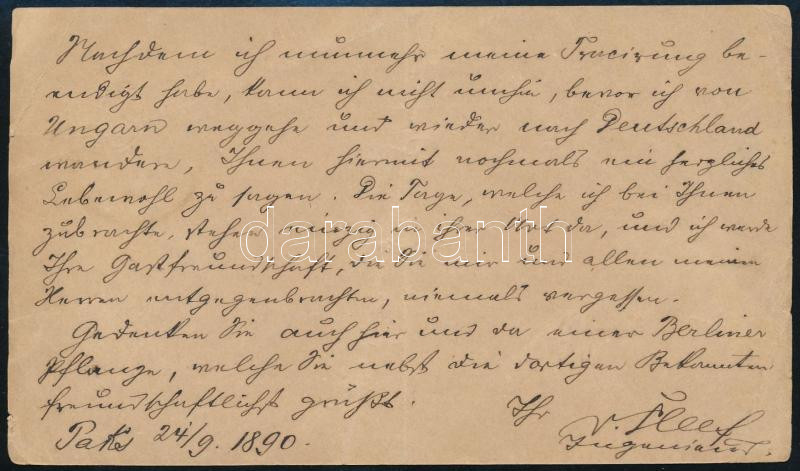 Nachdem ich nunmehr meine Tracirung be-
endigt habe, kann ich nicht umhin, bevor ich von
Ungarn weggehe und wieder nach Deutschland
wandere, Ihnen hiermit nochmals ein herzliches
Lebewohl zu sagen. Die Tage, welche ich bei Ihnen
zubrachte, stehen einzig in ihrer Art da, und ich werde
Ihre Gastfreundschaft, die Sie mir und allen meinen
Herren entgegenbrachten, niemals vergessen.
Gedenken Sie auch hier und da einer Berliner
Pflanze, welche Sie nebst die dortigen Bekannten
freundschaftlichst grüßt.
Ihr
Paks 24/9. 1890.
Ingenieur.
darabanth